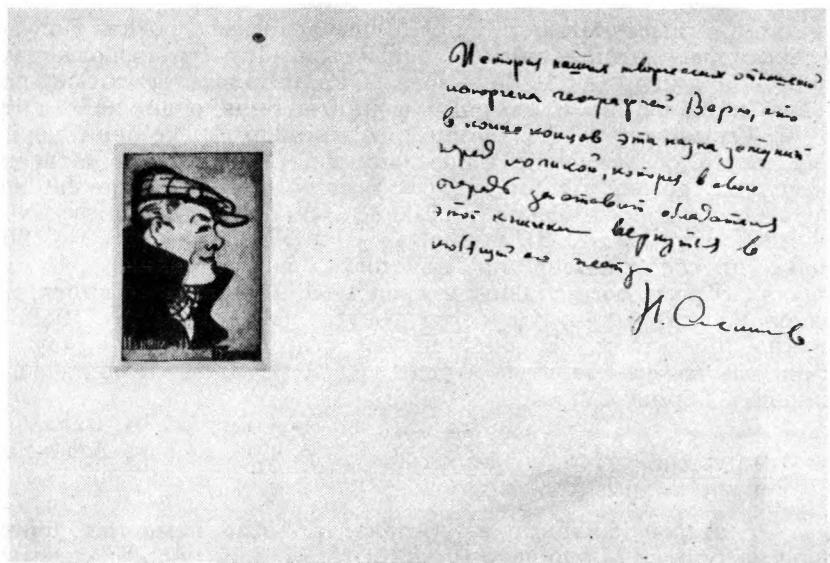 История наших творческих отношений
испорчена географией Верю, что
в конце концов эта наука отступит
перед логикой, которая в свою
очередь заставит обладателя
этой книжки вернуться в
любящий его театр
Н. Акимов